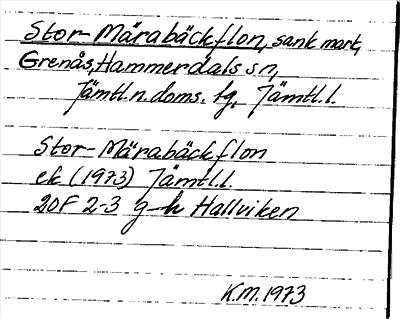 Stor-Märabäckflon, sank mark,
Grenås, Hammerdals sn,
Jämtl.n.doms. tg, Jämtl.l.
Stor-Märabäckflon
ek (1973) Jämtl.l.
20F 2-3 g-h Hallviken
K.M. 1973